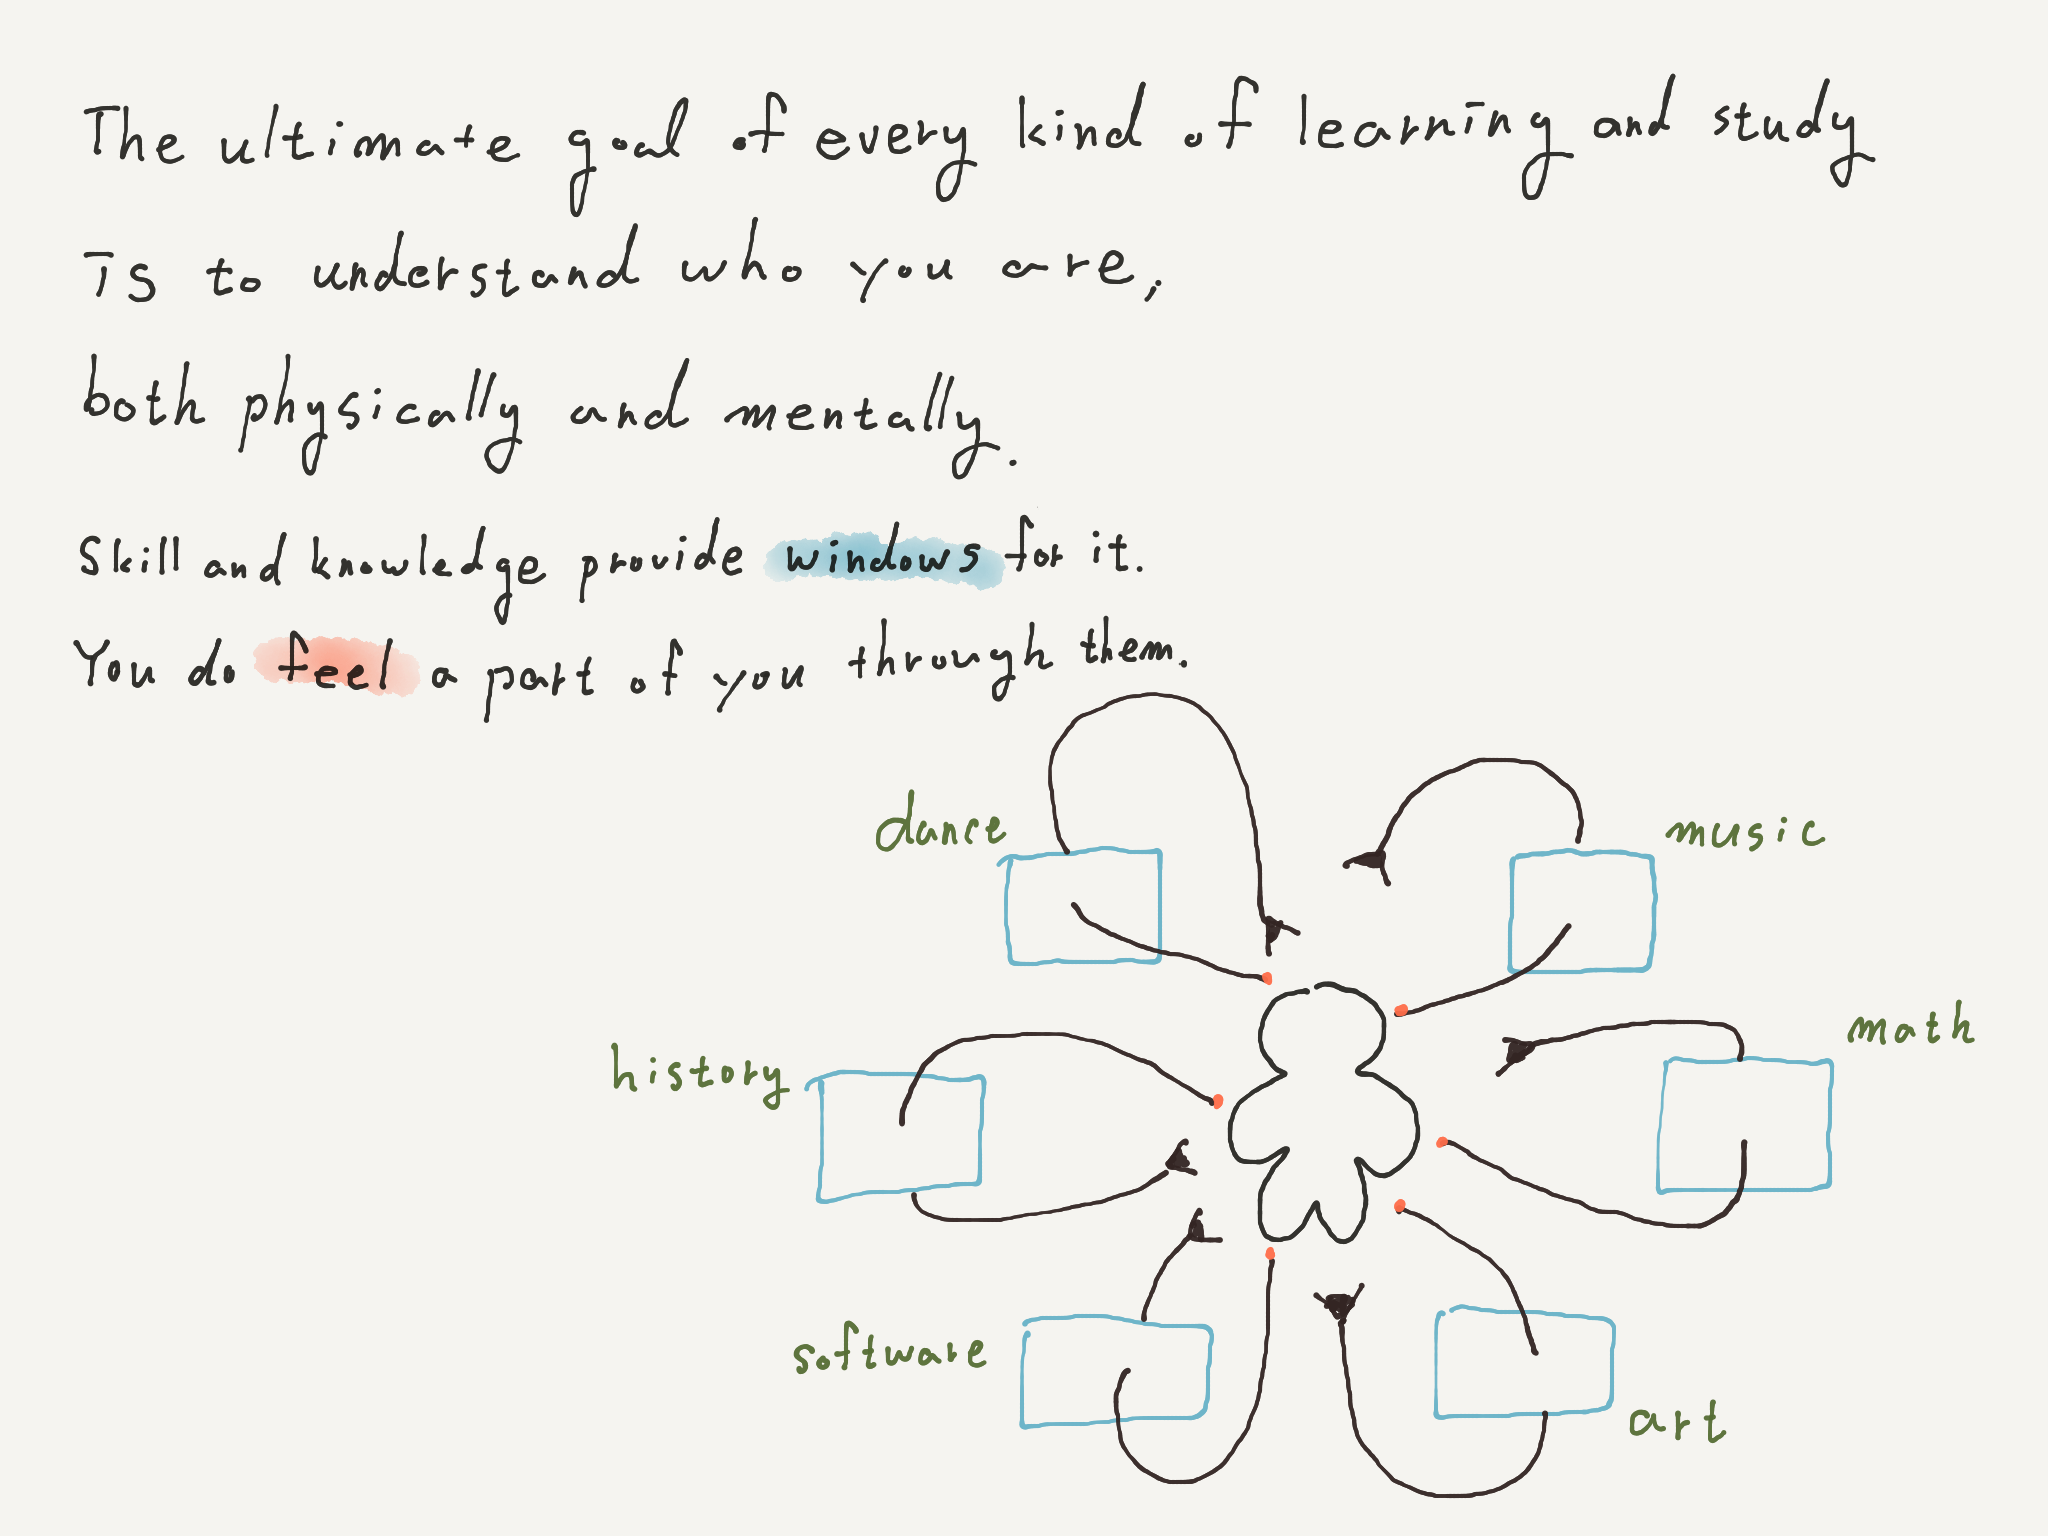 The ultimate goal of every kind of learning and study
is to understand who you are,
both physically and mentally.
Skill and knowledge provide windows for it.
You do feel a part of you through them.
dance
music
history
math
software
art